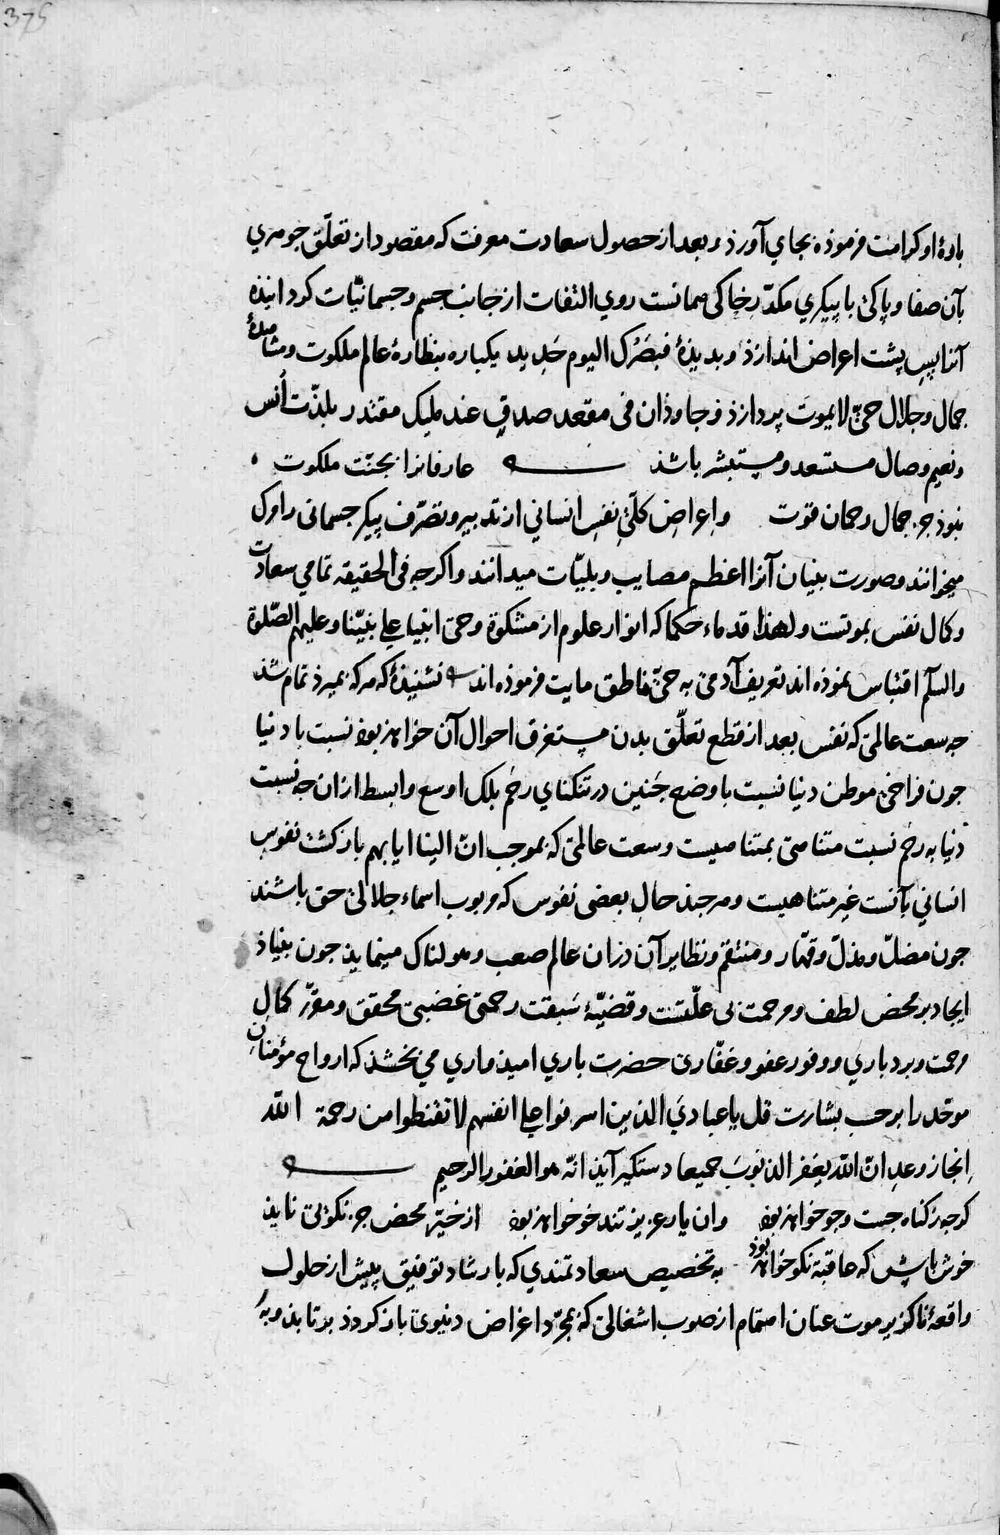 375
باوۀ او کرامت فرموذه بجاي آورذ و بعد از حصول سعادت معرفت که مقصود از تعلّق جوهري
بآن صفا و پاکی با پیکري مکدّر خاکی همانست روي التفات از جانب جسم و جسمانیّات کردانیذه
آنرا پس پشت اعراض اندازذ و بدیذۀ فبصرک الیوم حدید یکباره بنظارۀ عالم ملکوت و مشاهدۀ
جمال و جلال حیّ لا یموت پردازذ و جاوذان فی مقعد صدق عند ملیک مقتدر بلذّت اُنس
و نعیم وصال مستسعد و مستبشر باشذ عارفانرا بجنّت ملکوت
نبوذ جز جمال رحمان قوت و اعراض کلّیِ نفس انساني از تدبیر و تصرّف پیکر جسمانی را مرک
میخوانند و صورت بینان آنرا اعظم مصایب و بلیّات میدانند و اکرجه فی الحقیقه تمامي سعادت
و کمال نفس بموتست و لهذا قدماء حکما که انوار علوم از مشکوة وحی انبیا علی نبیّنا و علیهم الصّلوة
والسلم اقتباس نموذه اند تعریف آدمی به حیّ ناطق مایت فرموذه اند نشنیذۀ که هرکه بمیرذ تمام شذ
جه سعت عالمی که نفس بعد از قطع تعلّق بدن مستغرق احوال آن خواهذ بوذ نسبت با دنیا
جون فراخی موطن دنیا نسبت با وضع جَنین در تنکناي رحم بلک اوسع و ابسط ازان جه نسبت
دنیا به رحم نسبت متناهی بمتناهیست و سعت عالمی که بموجب انّ الینا ایابهم بازکشت نفوس
انساني بآنست غیر متناهیست و هرجند حال بعضی نفوس که مربوب اسماء جلالی حق باشند
جون مضلّ و مذلّ و قهّار و منتقم و نظایر آن دران عالم صعب و هولناک مینمایذ جون بنیاذ
ایجاد بر محض لطف و مرحمت بی علّتست و قضیّۀ سَبقت رحمتی غضبی محقق و مقرّر کمال
رحمت و بردباري و وفور عفو و غفّارئ حضرت باري امیذواري می بخشذ که ارواح مؤمنان
موحّد را بر حسب بشارت قل یا عبادي الذین اسرفوا علی انفسهم لا تقنطوا من رحمة الله
اِنجاز وعدِ انّ الله یغفر الذنوب جمیعا دستکیر آیذ انّه هو الغفور الرحیم
کرجه ز کناه جست و جو خواهذ بوذ وان یار عزیز تندخو خواهذ بوذ از خیر محض جز نکوئی نایذ
خوش باش که عاقبة نکو خواهذ بوذ به تخصیص سعادتمندي که بارشاد توفیق پیش از حلول
واقعۀ ناکزیر موت عنان اهتمام از صوب اشغالی که بمجرّد اغراض دنیوی بازکردذ برتابذ و به